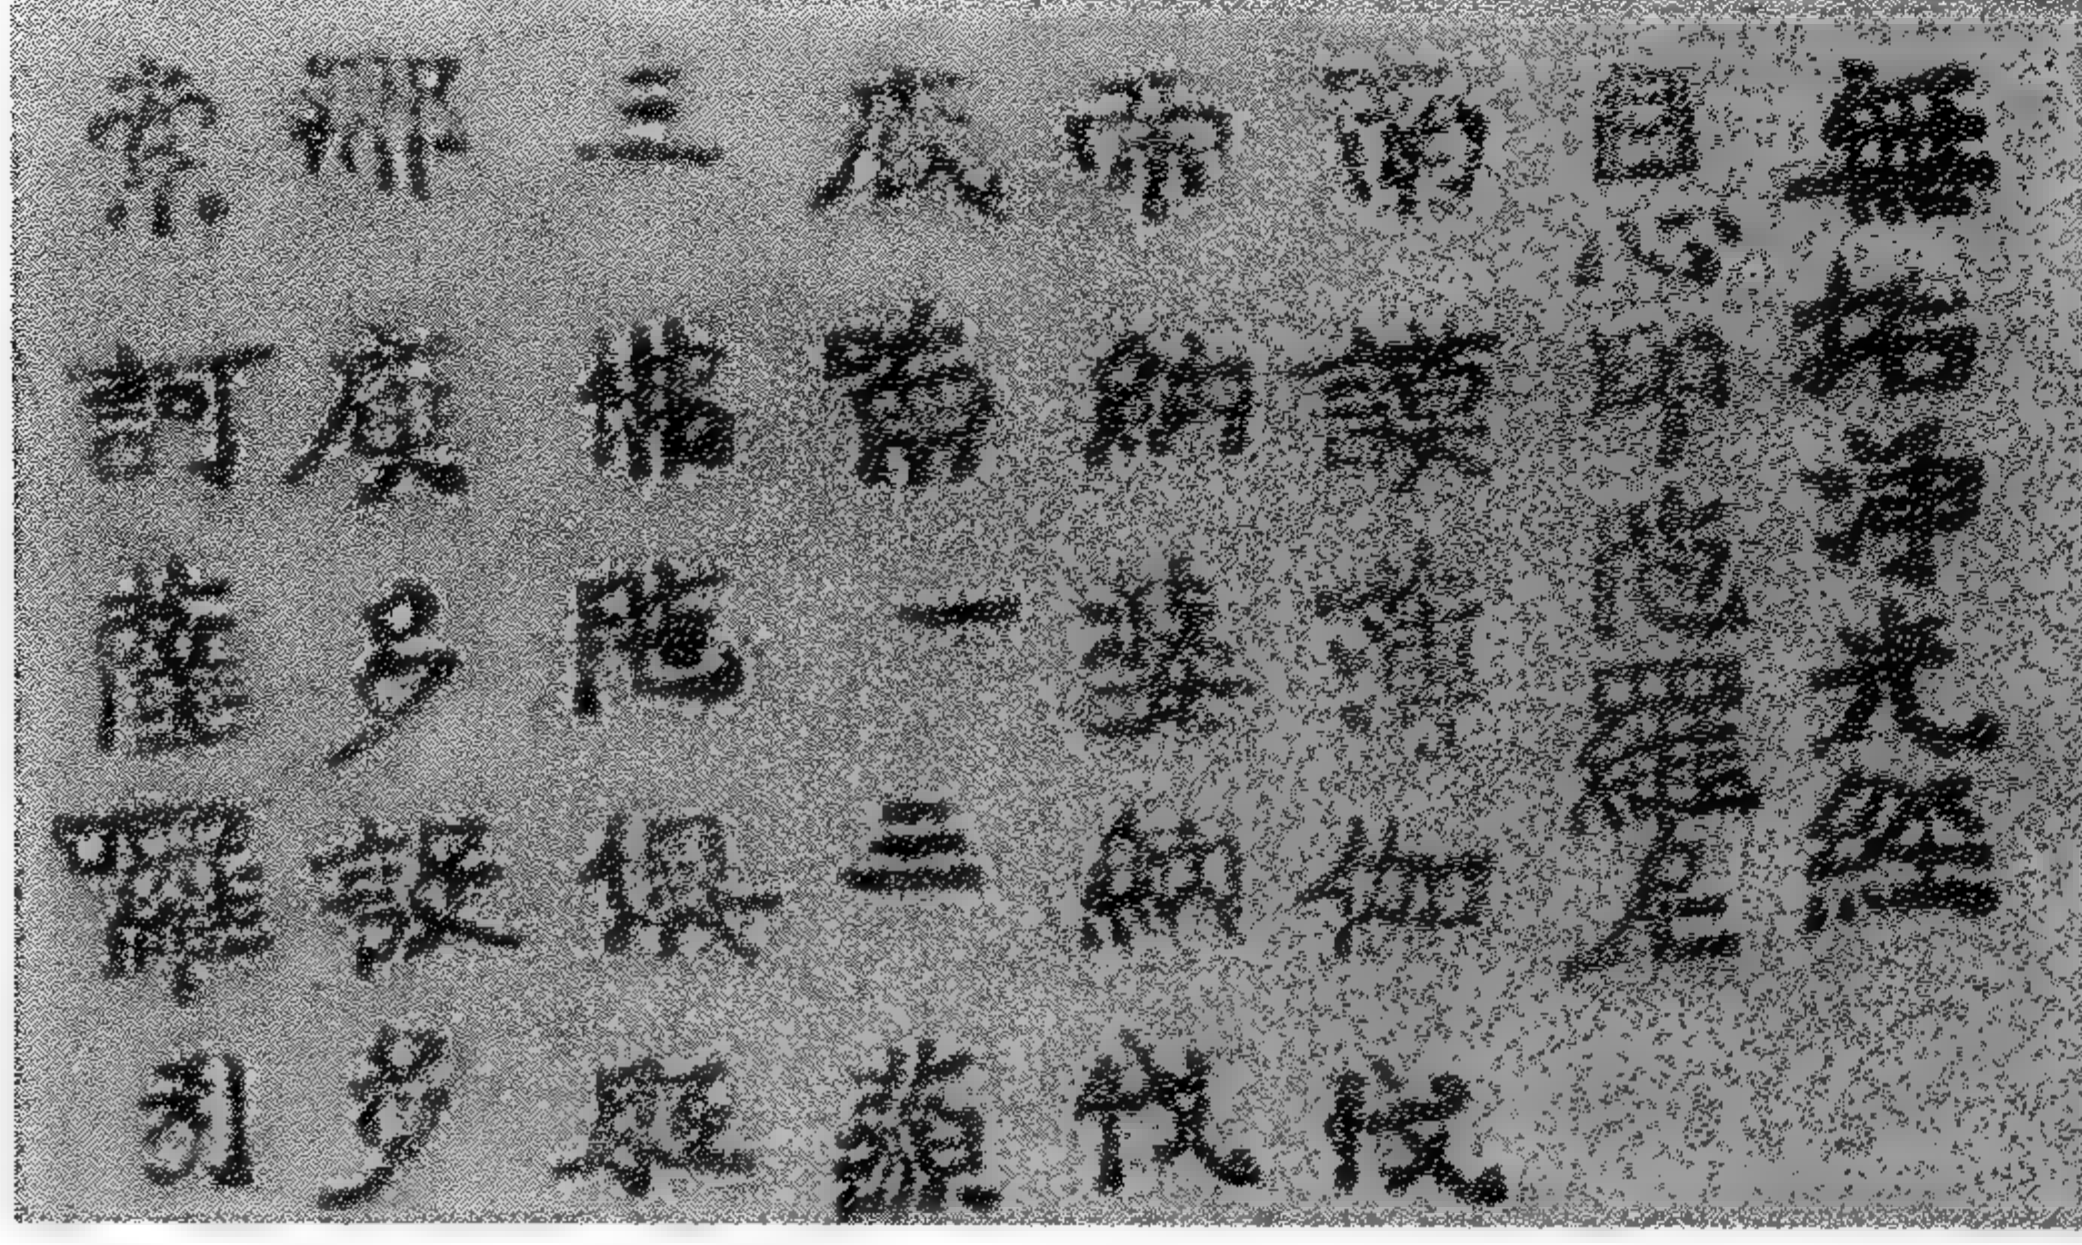 無垢淨光經
自心印陁羅尼
南謨薄伽伐
帝納婆納伐
底喃一三藐
三佛陁俱胝
那庾多設多
索訶薩羅引